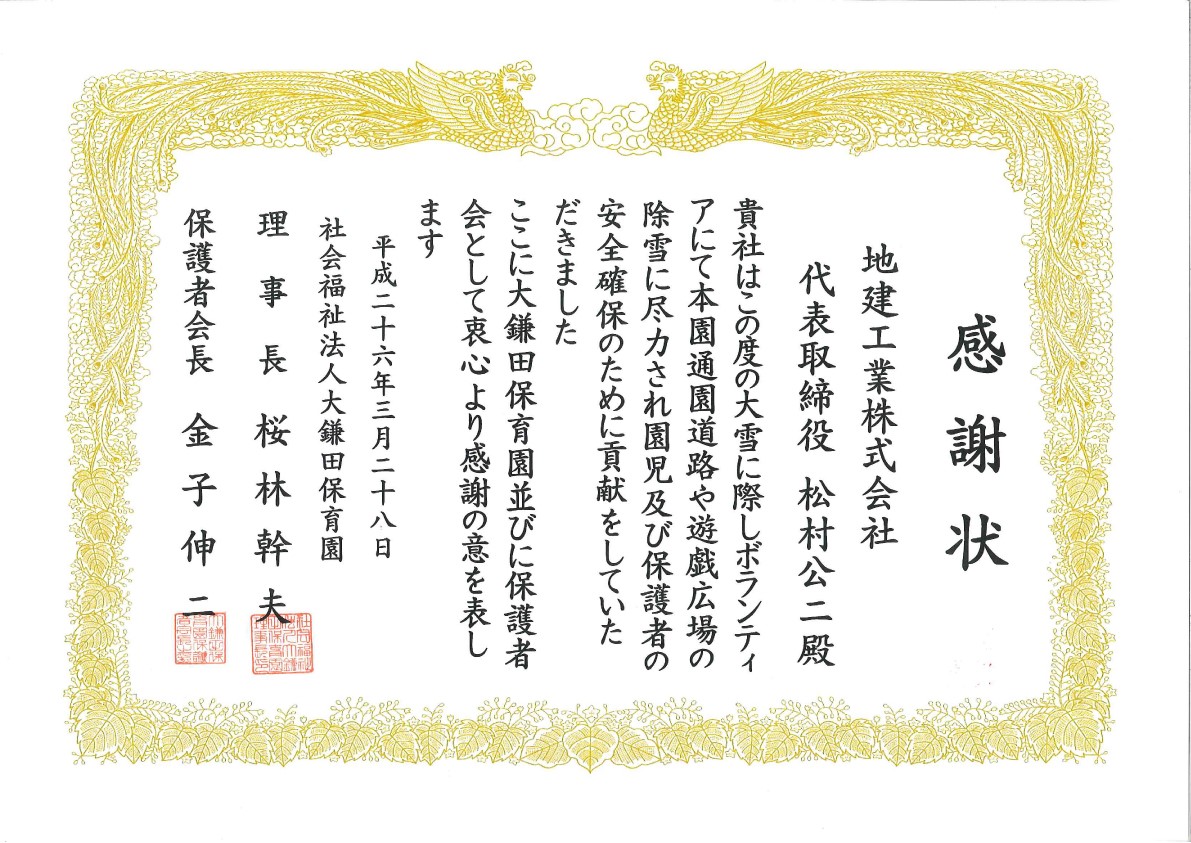 感謝状
地建工業株式会社
代表取締役 松村公二殿
貴社はこの度の大雪に際しボランティ
アにて本園通園道路や遊戯広場の
除雪に尽力され園児及び保護者の
安全確保のために貢献をしていた
だきました
ここに大鎌田保育園並びに保護者
会として衷心より感謝の意を表し
ます
平成二十六年三月二十八日
社会福祉法人大鎌田保育園
理事長 桜林幹夫
保護者会長 金子伸二